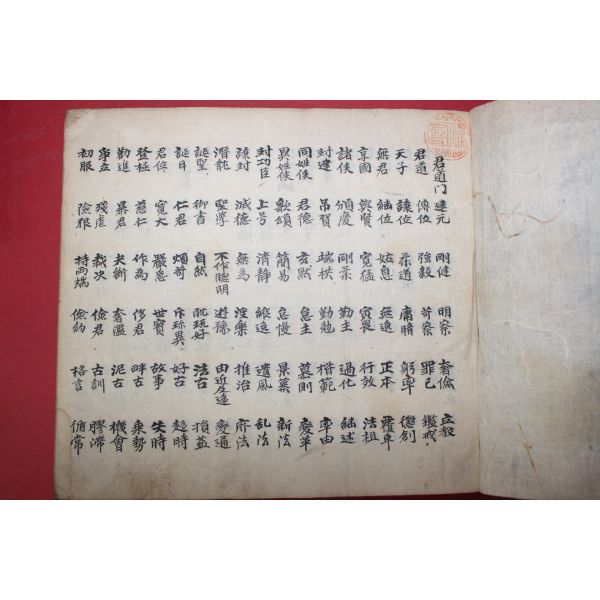 君道门 建元 剛健 明察 奢儉 立教
君道 傳位 強毅 苛察 罪己 鑑戒
天子 讓位 柔道 庸暗 躬率
無君 姑息 燕逸 正本 覆車
享國 與賢 寬猛 寅畏 行效 法祖
諸侯 頒慶 剛柔 勤主 過化
封建 吊賢 端拱 勤勉 楷範 率由
同姓侯 君德 玄默 怠主 慕則 變革
異姓侯 歌頌 簡易 怠慢 景慕 新法
封功臣 上号 清静 縱逸 遺風 乱法
减德 無為 淫樂 推治
潛龍 聖學 不作聰明 遊豫 由近及遠 變通
誕聖 御書 自然 耽玩好 法古 損益
誕日 仁君 煩苛 斥珍異 好古 趍時
寬大 嚴急 世寶 故事 失時
登極 慈仁 作為 侈君 畔古 乗勢
勤進 暴君 奢濫 泥古 機會
殘虐 裁决 儉君 古訓 膠滯
初服 險狠 持両端 儉約 格言 循常